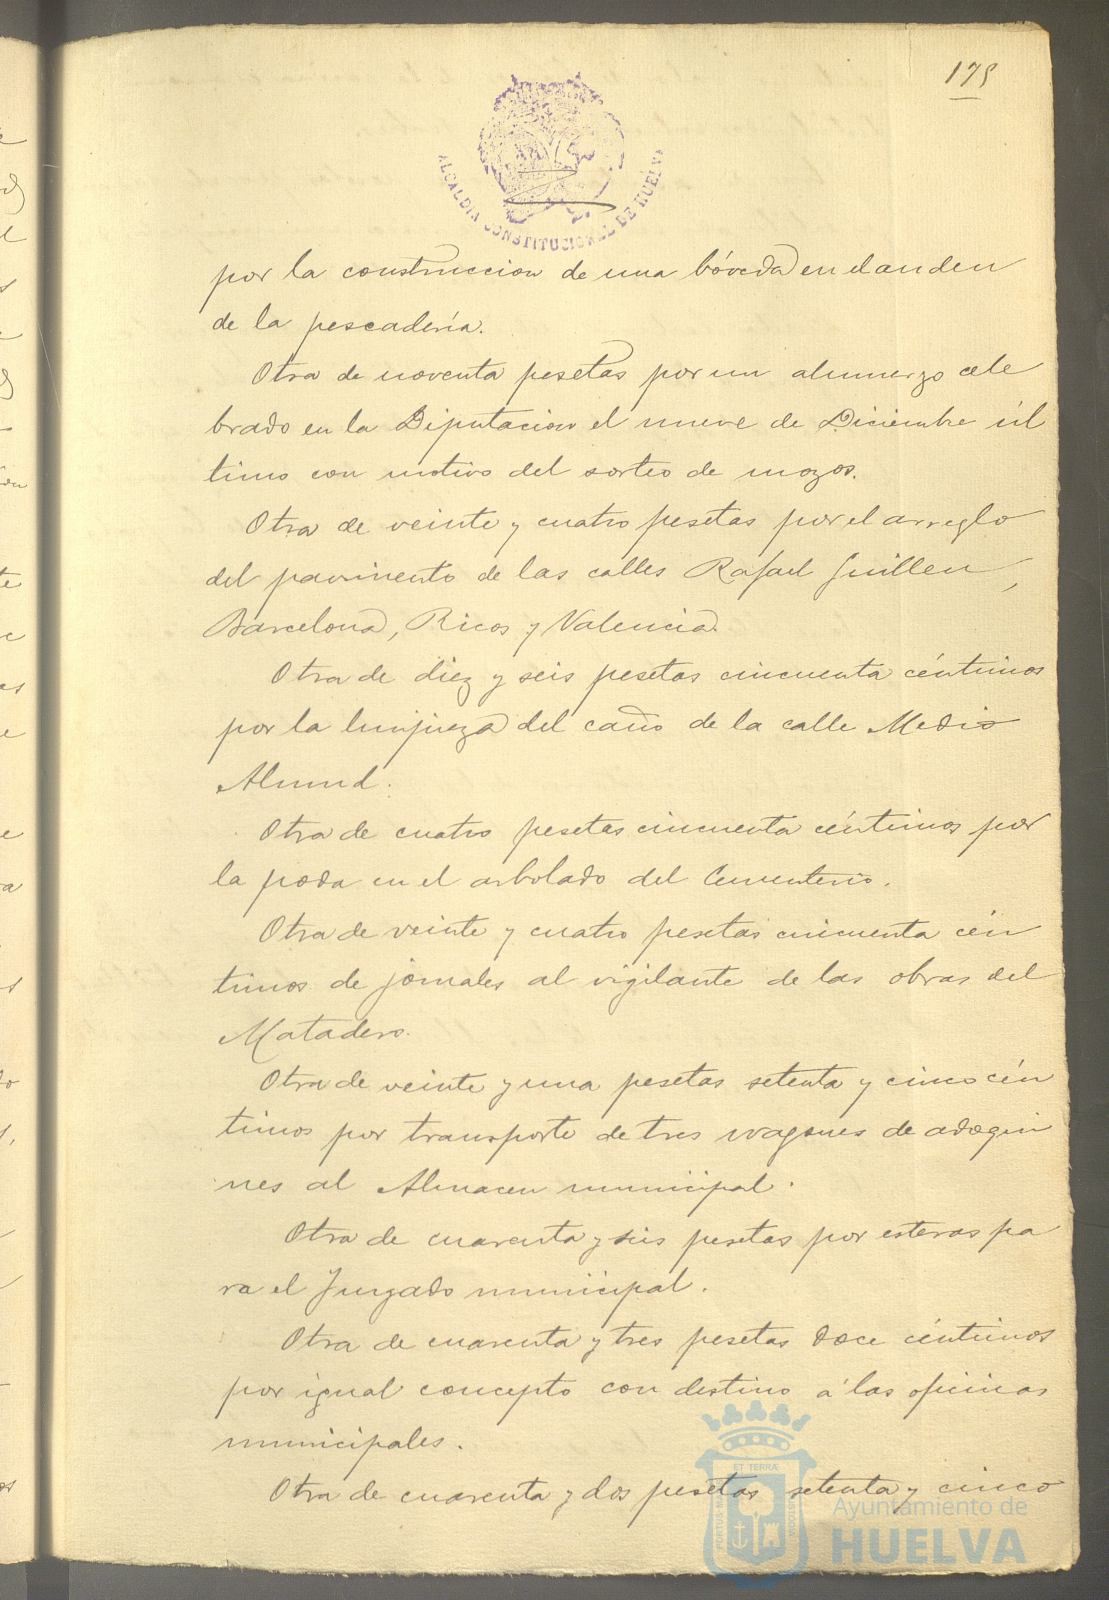 175
ALCALDIA CONSTITUCIONAL DE HUELVA
por la construccion de una bóveda en el anden
de la pescadería.
Otra de noventa pesetas por un almuerzo cele
brado en la Diputacion el nueve de Diciembre úl
timo con motivo del sorteo de mozos.
Otra de veinte y cuatro pesetas por el arreglo
del pavimento de las calles Rafael Guillen,
Barcelona, Ricos y Valencia.
Otra de diez y seis pesetas cincuenta céntimos
por la limpieza del caño de la calle Medio
Almud.
Otra de cuatro pesetas cincuenta céntimos por
la poda en el arbolado del Cementerio.
Otra de veinte y cuatro pesetas cincuenta cén
timos de jornales al vigilante de las obras del
Matadero.
Otra de veinte y una pesetas setenta y cinco cén
timos por transporte de tres wagones de adoqui
nes al Almacen municipal.
Otra de cuarenta y seis pesetas por esteras pa
ra el Juzgado municipal.
Otra de cuarenta y tres pesetas doce céntimos
por igual concepto con destino á las oficinas
municipales.
Otra de cuarenta y dos pesetas setenta y cinco
ET TERRÆ
PORTUS MARIS
CUSTODIA
Ayuntamiento de
HUELVA